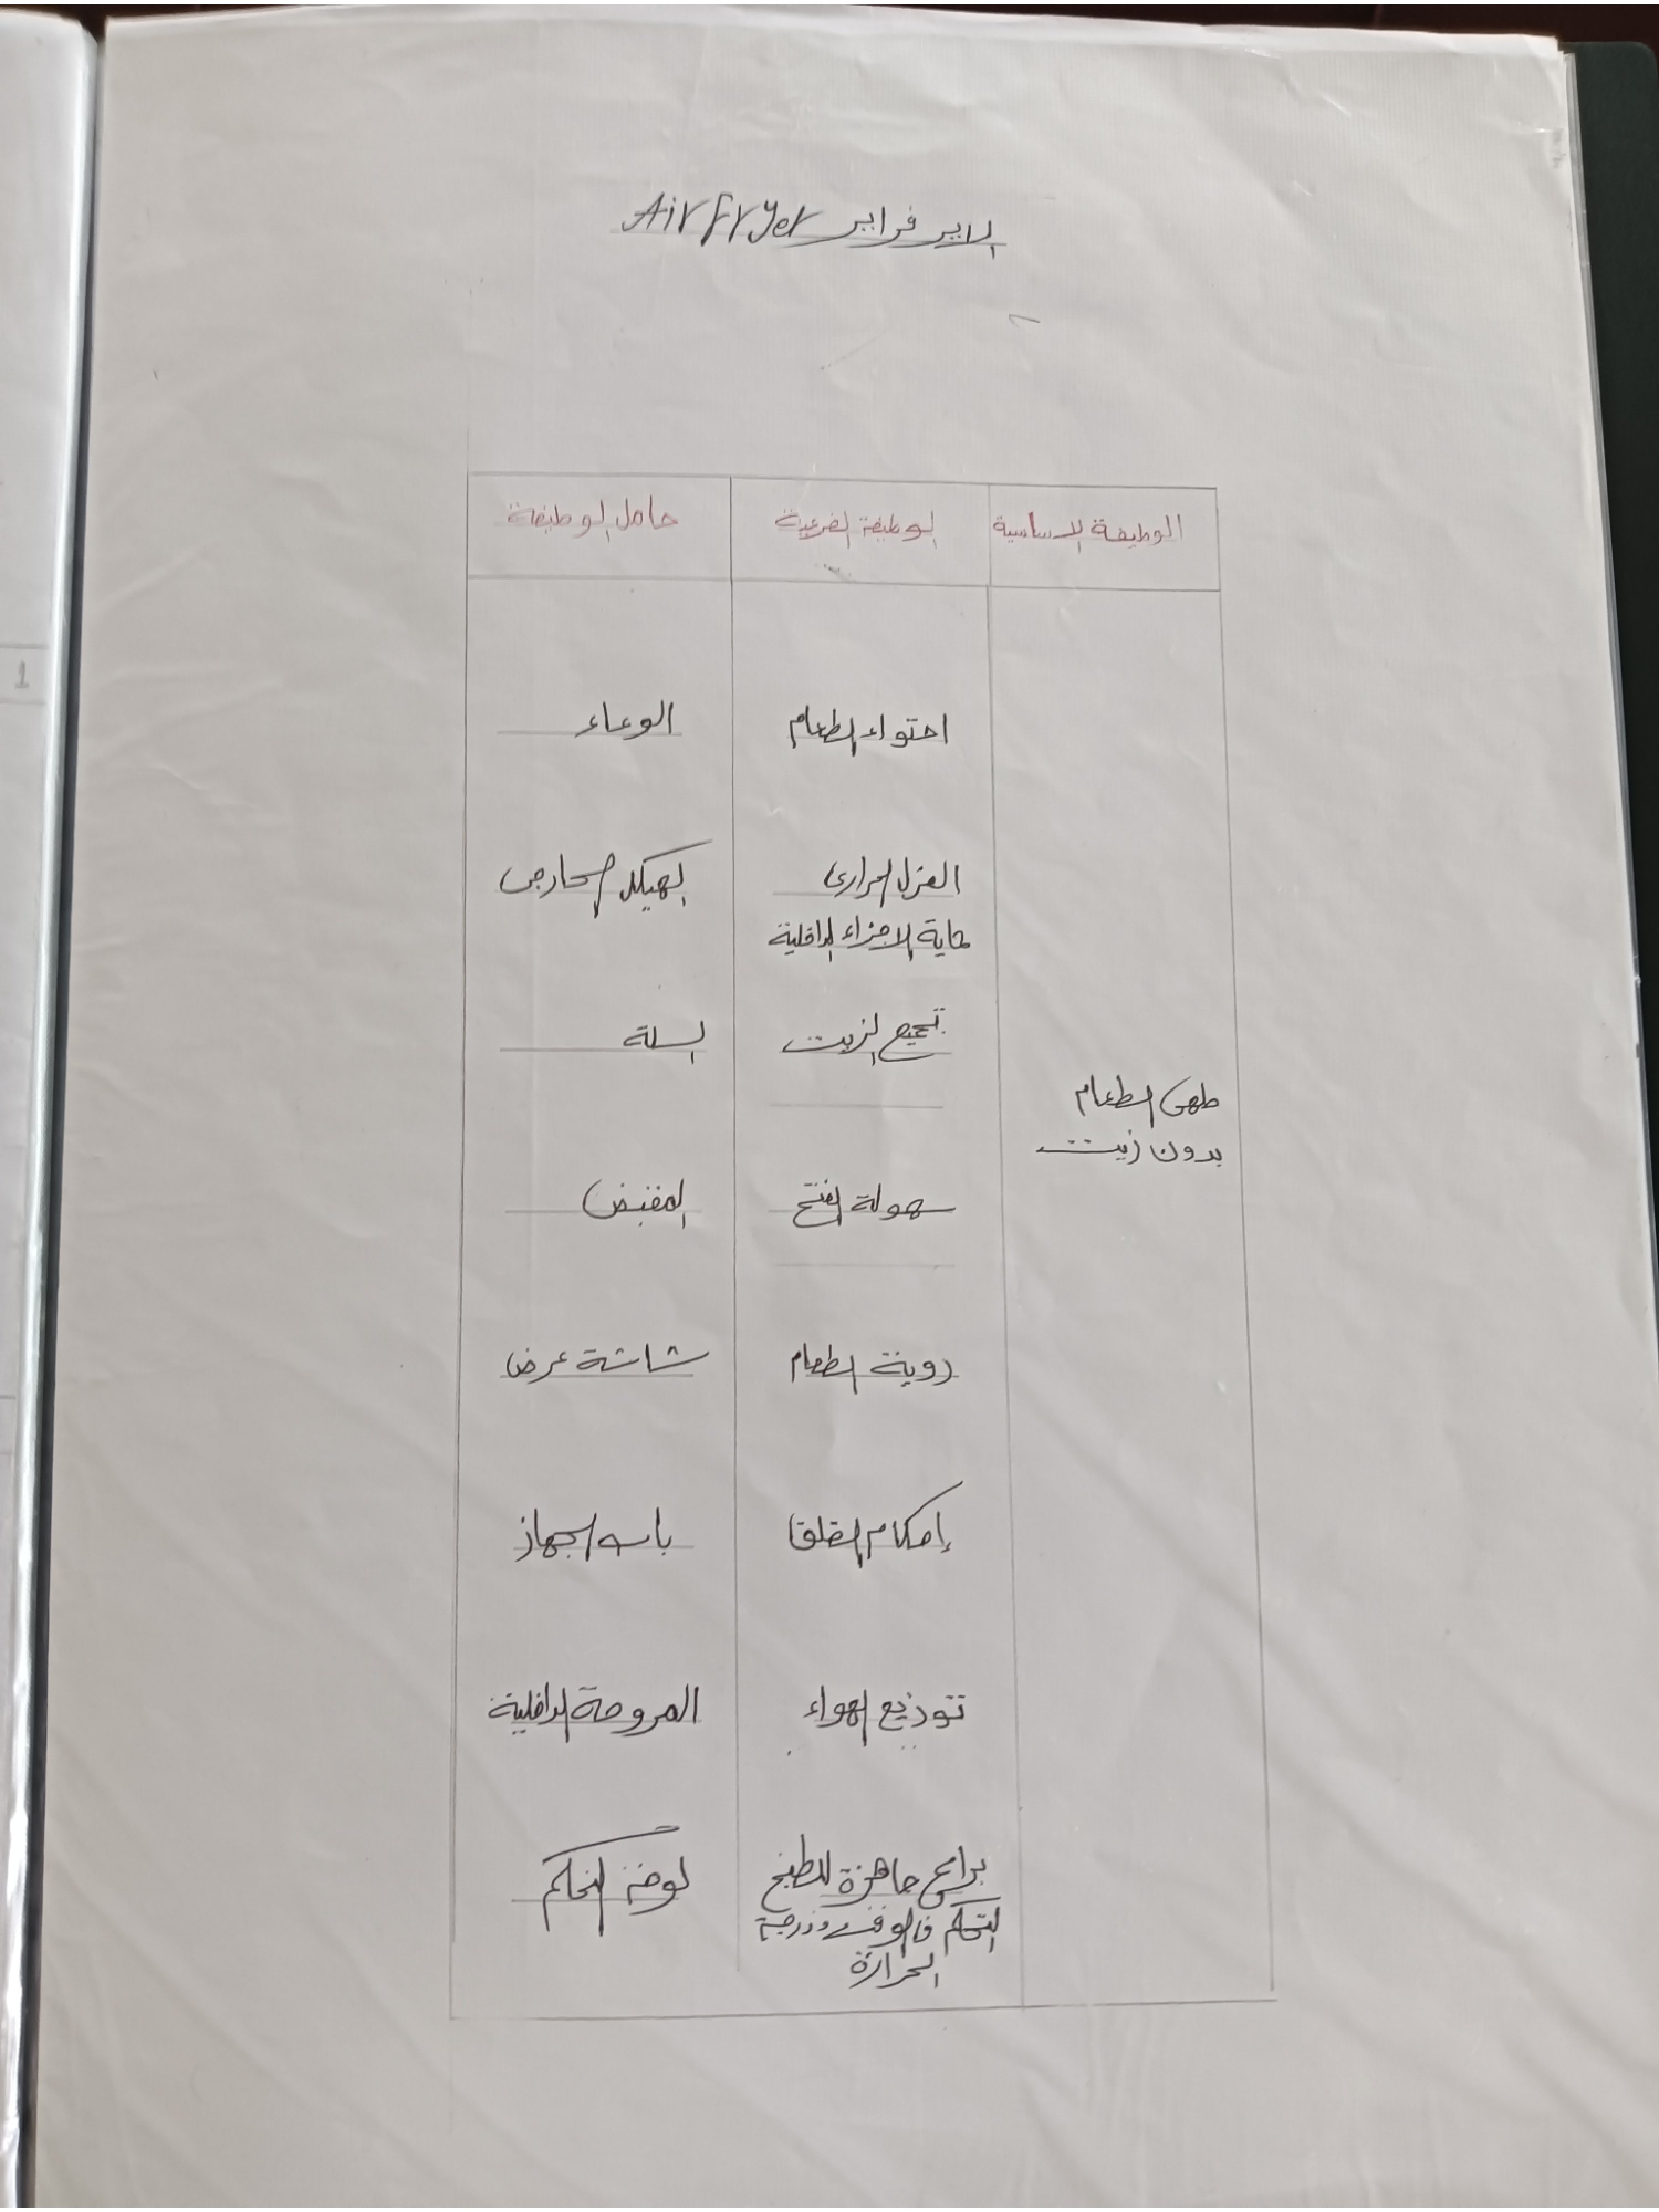 الاير فراير Air Fryer
الوظيفة الاساسية الوظيفة الفرعية حامل الوظيفة
احتواء الطعام الوعاء
العزل الحرارى الهيكل الخارجى
حماية الاجزاء الداخلية
تجميع الزيت السلة
طهى الطعام
بدون زيت
سهولة الفتح المقبض
روية الطعام شاشة عرض
إحكام الغلق باب الجهاز
توزيع الهواء المروحة الداخلية
برامج جاهزة للطبخ لوحة التحكم
التحكم فالوقت ودرجة
الحرارة
1